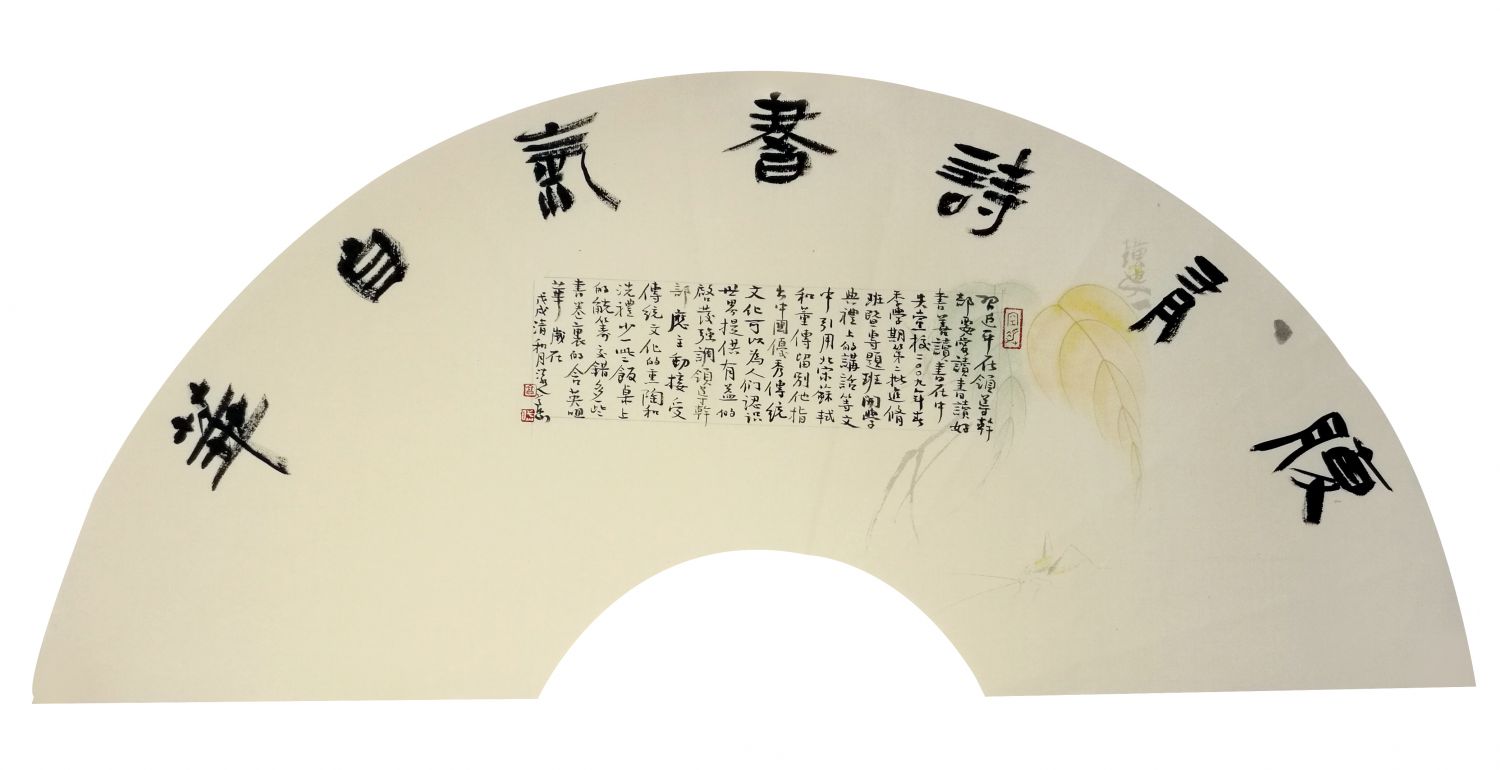 腹有詩書氣自華
習近平在領導幹
部要愛讀書讀好
書善讀書在中
央黨校二〇〇九年春
季學期第二批進修
班暨專題班開學
典禮上的講話等文
中引用北宋蘇軾
和董傳留別他指
出中國優秀傳統
文化可以為人们認識
世界提供有益的
啓發強調領導幹
部應主動接受
傳統文化的熏陶和
洗禮少一些飯桌上
的觥籌交錯多些
書卷裏的含英咀
華歲在
戊戌清和月